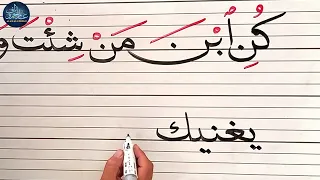 كُنِ ٱبْنَ مَنْ شِئْتَ وَ
يغنيك